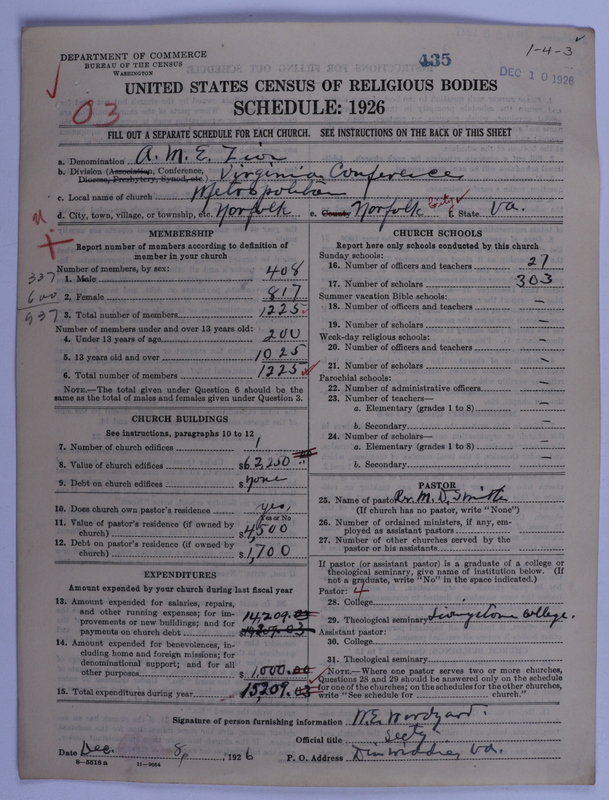 DEPARTMENT OF COMMERCE
BUREAU OF THE CENSUS
WASHINGTON
435
1-4-3
DEC 10 1926
UNITED STATES CENSUS OF RELIGIOUS BODIES
SCHEDULE: 1926
03
FILL OUT A SEPARATE SCHEDULE FOR EACH CHURCH. SEE INSTRUCTIONS ON THE BACK OF THIS SHEET
a. Denomination A. M. E. Zion
b. Division (Association, Conference, Diocese, Presbytery, Synod, etc.) Virginia Conference
c. Local name of church Metropolitan
d. City, town, village, or township, etc. Norfolk e. County Norfolk City f. State Va.
MEMBERSHIP
Report number of members according to definition of
member in your church
Number of members, by sex:
1. Male 408
2. Female 817
3. Total number of members 1225
337
600
937
Number of members under and over 13 years old:
4. Under 13 years of age 200
5. 13 years old and over 1025
6. Total number of members 1225
NOTE.—The total given under Question 6 should be the
same as the total of males and females given under Question 3.
CHURCH BUILDINGS
See instructions, paragraphs 10 to 12
7. Number of church edifices 1
8. Value of church edifices $62,250
9. Debt on church edifices $ none
10. Does church own pastor's residence? yes,
(Yes or No)
11. Value of pastor's residence (if owned by
church) $4,500
12. Debt on pastor's residence (if owned by
church) $1,700
EXPENDITURES
Amount expended by your church during last fiscal year
13. Amount expended for salaries, repairs,
and other running expenses; for im-
provements or new buildings; and for
payments on church debt 14,209.03
14,209.03
14. Amount expended for benevolences, in-
cluding home and foreign missions; for
denominational support; and for all
other purposes $1,000.00
15. Total expenditures during year 15,209.03
CHURCH SCHOOLS
Report here only schools conducted by this church
Sunday schools:
16. Number of officers and teachers 27
17. Number of scholars 303
Summer vacation Bible schools:
18. Number of officers and teachers —
19. Number of scholars —
Week-day religious schools:
20. Number of officers and teachers —
21. Number of scholars —
Parochial schools:
22. Number of administrative officers —
23. Number of teachers—
a. Elementary (grades 1 to 8) —
b. Secondary —
24. Number of scholars—
a. Elementary (grades 1 to 8) —
b. Secondary —
PASTOR
25. Name of pastor Rev. M. D. Smith
(If church has no pastor, write "None")
26. Number of ordained ministers, if any, em-
ployed as assistant pastors
27. Number of other churches served by the
pastor or his assistants
If pastor (or assistant pastor) is a graduate of a college or
theological seminary, give name of institution below. (If
not a graduate, write "No" in the space indicated.)
Pastor: 4
28. College
29. Theological seminary Livingstone College.
Assistant pastor:
30. College
31. Theological seminary
NOTE.—Where one pastor serves two or more churches,
Questions 28 and 29 should be answered only on the schedule
for one of the churches; on the schedules for the other churches,
write "See schedule for ........ church."
Signature of person furnishing information W. E. Woodyard.
Official title Secty.
Date Dec. 8, 1926 P. O. Address Dinwiddie, Va.
8-5518a 11-9054